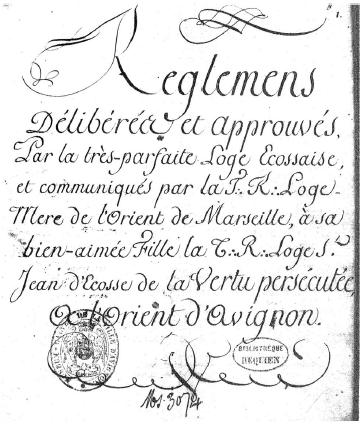 1.
Reglemens
Délibérés et approuvés,
Par la très-parfaite Loge Ecossaise,
et communiqués par la T∴R∴Loge-
Mere de l'Orient de Marseille, à sa
bien-aimée Fille la T∴R∴Loge S.ᵗ
Jean d'Ecosse de la Vertu persécutée,
à l'Orient d'Avignon.
BIBLIOTHÈQUE
REQUIEN
Ms. 3074